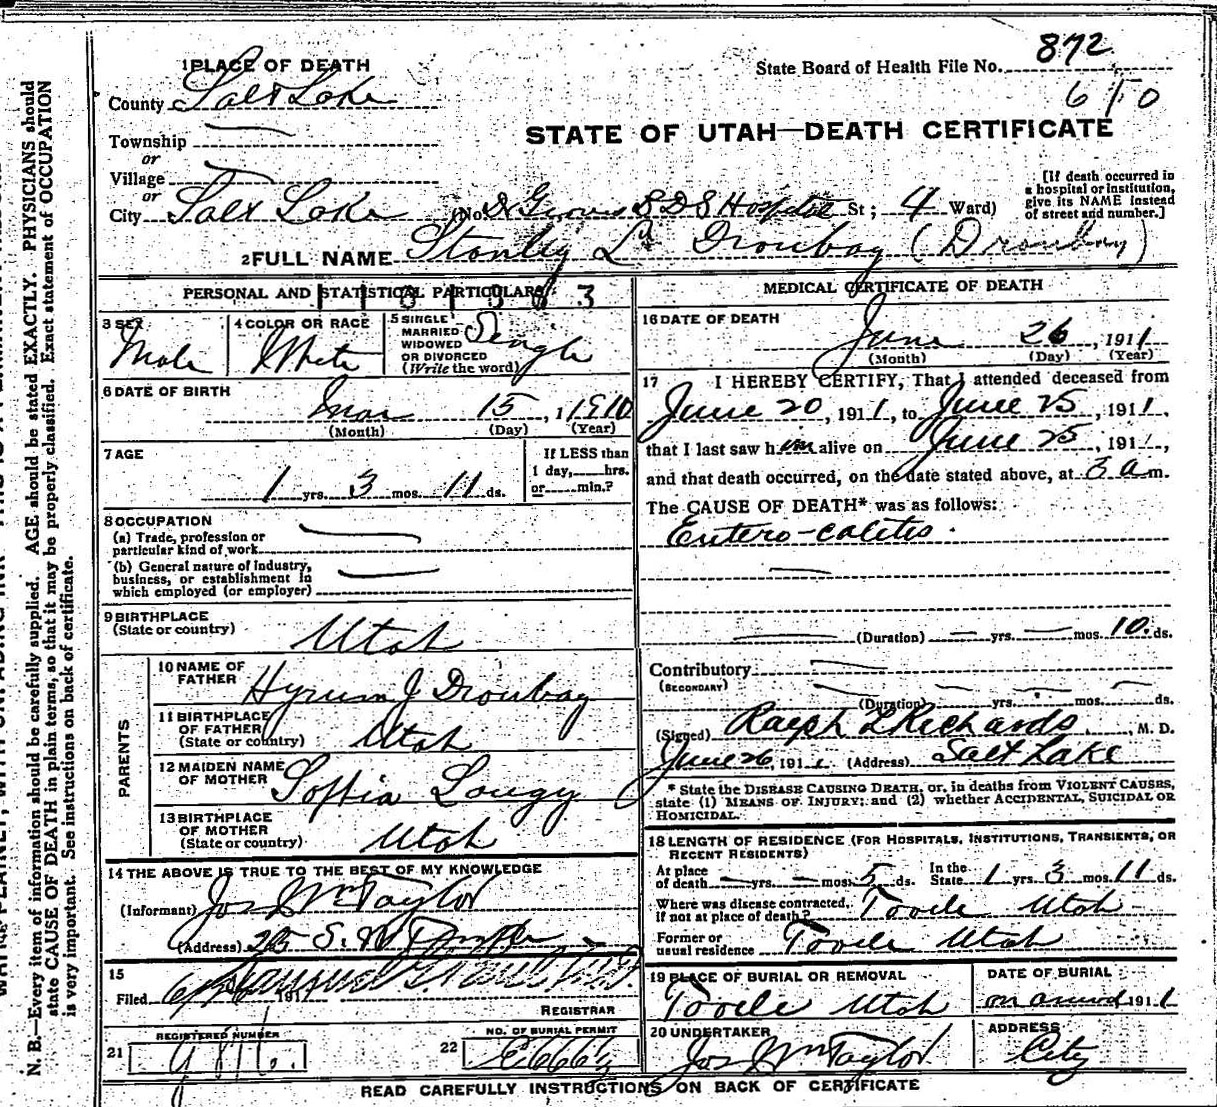 872
State Board of Health File No.
6 10
1 PLACE OF DEATH
County Salt Lake
STATE OF UTAH—DEATH CERTIFICATE
Township
or
Village
or
City Salt Lake (No. Groves L D S Hospital St; 4 Ward)
[If death occurred in a hospital or institution, give its NAME instead of street and number.]
2 FULL NAME Stanley L Droubay (Droubay)
PERSONAL AND STATISTICAL PARTICULARS
3 SEX Male
4 COLOR OR RACE White
5 SINGLE MARRIED WIDOWED OR DIVORCED (Write the word) Single
6 DATE OF BIRTH
Mar 15, 1 1910
(Month) (Day) (Year)
7 AGE
1 yrs. 3 mos. 11 ds.
If LESS than
1 day, hrs.
or min.?
8 OCCUPATION
(a) Trade, profession or
particular kind of work
(b) General nature of industry,
business, or establishment in
which employed (or employer)
9 BIRTHPLACE
(State or country) Utah
PARENTS
10 NAME OF FATHER Hyrum J Droubay
11 BIRTHPLACE OF FATHER (State or country) Utah
12 MAIDEN NAME OF MOTHER Sophia Longy
13 BIRTHPLACE OF MOTHER (State or country) Utah
14 THE ABOVE IS TRUE TO THE BEST OF MY KNOWLEDGE
(Informant) Jos Wm Taylor
(Address) S. W Temple
15
Filed 191
REGISTRAR
REGISTERED NUMBER
21
NO. OF BURIAL PERMIT
22
MEDICAL CERTIFICATE OF DEATH
16 DATE OF DEATH
June 26, 1911
(Month) (Day) (Year)
17 I HEREBY CERTIFY, That I attended deceased from
June 20, 1911, to June 25, 1911,
that I last saw him alive on June 25, 1911,
and that death occurred, on the date stated above, at 3 a m.
The CAUSE OF DEATH* was as follows:
Entero-colitis.
(Duration) yrs. mos. 10. ds.
Contributory
(SECONDARY)
(Duration) yrs. mos. ds.
(Signed) Ralph L Richards, M. D.
June 26, 1911 (Address) Salt Lake
* State the DISEASE CAUSING DEATH, or, in deaths from VIOLENT CAUSES,
state (1) MEANS OF INJURY; and (2) whether ACCIDENTAL, SUICIDAL OR
HOMICIDAL.
18 LENGTH OF RESIDENCE (FOR HOSPITALS, INSTITUTIONS, TRANSIENTS, OR
RECENT RESIDENTS)
At place of death yrs. mos. 5 ds. In the State 1 yrs. 3 mos. 11 ds.
Where was disease contracted, if not at place of death? Tooele Utah
Former or usual residence Tooele Utah
19 PLACE OF BURIAL OR REMOVAL
Tooele Utah
DATE OF BURIAL
on arrival 1911
20 UNDERTAKER
Jos Wm Taylor
ADDRESS
City
READ CAREFULLY INSTRUCTIONS ON BACK OF CERTIFICATE
N. B.—Every item of information should be carefully supplied. AGE should be stated EXACTLY. PHYSICIANS should
state CAUSE OF DEATH in plain terms, so that it may be properly classified. Exact statement of OCCUPATION
is very important. See instructions on back of certificate.